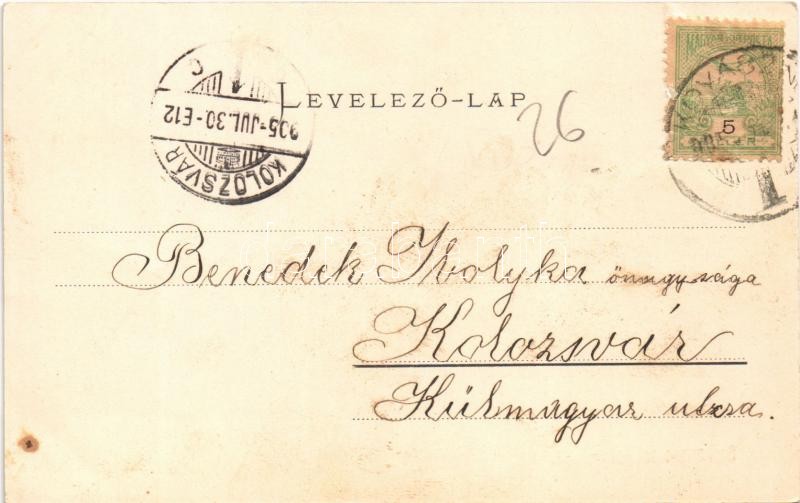 LEVELEZŐ-LAP
26
MAGYAR KIR. POSTA
5
KOLOZSVÁR
905-JUL.30.-E12
C 1
KOVÁSZ
Benedek Ibolyka önagysága
Kolozsvár
Külmagyar utcza.